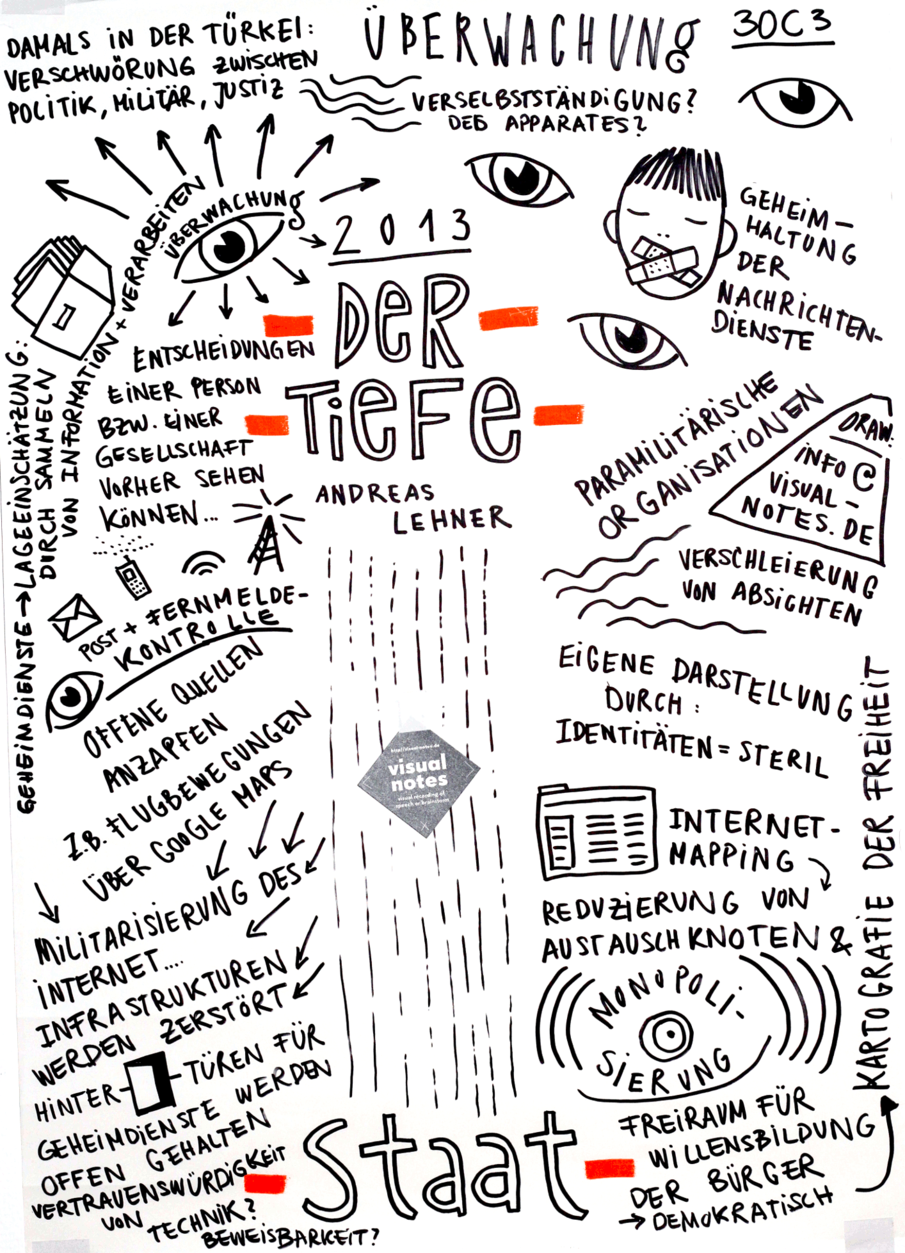 ÜBERWACHUNG
30C3
DAMALS IN DER TÜRKEI:
VERSCHWÖRUNG ZWISCHEN
POLITIK, MILITÄR, JUSTIZ
VERSELBSTSTÄNDIGUNG?
DES APPARATES?
ÜBERWACHUNG
2013
DER
TIEFE
ANDREAS
LEHNER
GEHEIM-
HALTUNG
DER
NACHRICHTEN-
DIENSTE
GEHEIMDIENSTE → LAGEEINSCHÄTZUNG:
DURCH SAMMELN
VON INFORMATION + VERARBEITEN
ENTSCHEIDUNGEN
EINER PERSON
BZW. EINER
GESELLSCHAFT
VORHER SEHEN
KÖNNEN...
POST + FERNMELDE-
KONTROLLE
OFFENE QUELLEN
ANZAPFEN
Z.B. FLUGBEWEGUNGEN
ÜBER GOOGLE MAPS
MILITARISIERUNG DES
INTERNET....
INFRASTRUKTUREN
WERDEN ZERSTÖRT
HINTER-TÜREN FÜR
GEHEIMDIENSTE WERDEN
OFFEN GEHALTEN
VERTRAUENSWÜRDIGKEIT
VON
TECHNIK?
BEWEISBARKEIT?
http://visualnotes.de
visual
notes
visual recording of
speech or brainstorm
PARAMILITÄRISCHE
ORGANISATIONEN
DRAW:
INFO@
VISUAL-
NOTES.DE
VERSCHLEIERUNG
VON ABSICHTEN
EIGENE DARSTELLUNG
DURCH:
IDENTITÄTEN = STERIL
INTERNET-
MAPPING
REDUZIERUNG VON
AUSTAUSCHKNOTEN &
MONOPOLI-
SIERUNG
Staat
FREIRAUM FÜR
WILLENSBILDUNG
DER BÜRGER
→ DEMOKRATISCH
KARTOGRAFIE DER FREIHEIT